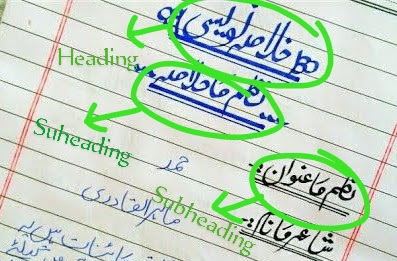 خلاصہ نویسی
Heading
نظم کا خلاصہ:۔
Suheading
نظم کا عنوان:۔ حمد
Subheading
شاعر کا نام:۔ ماہر القادری